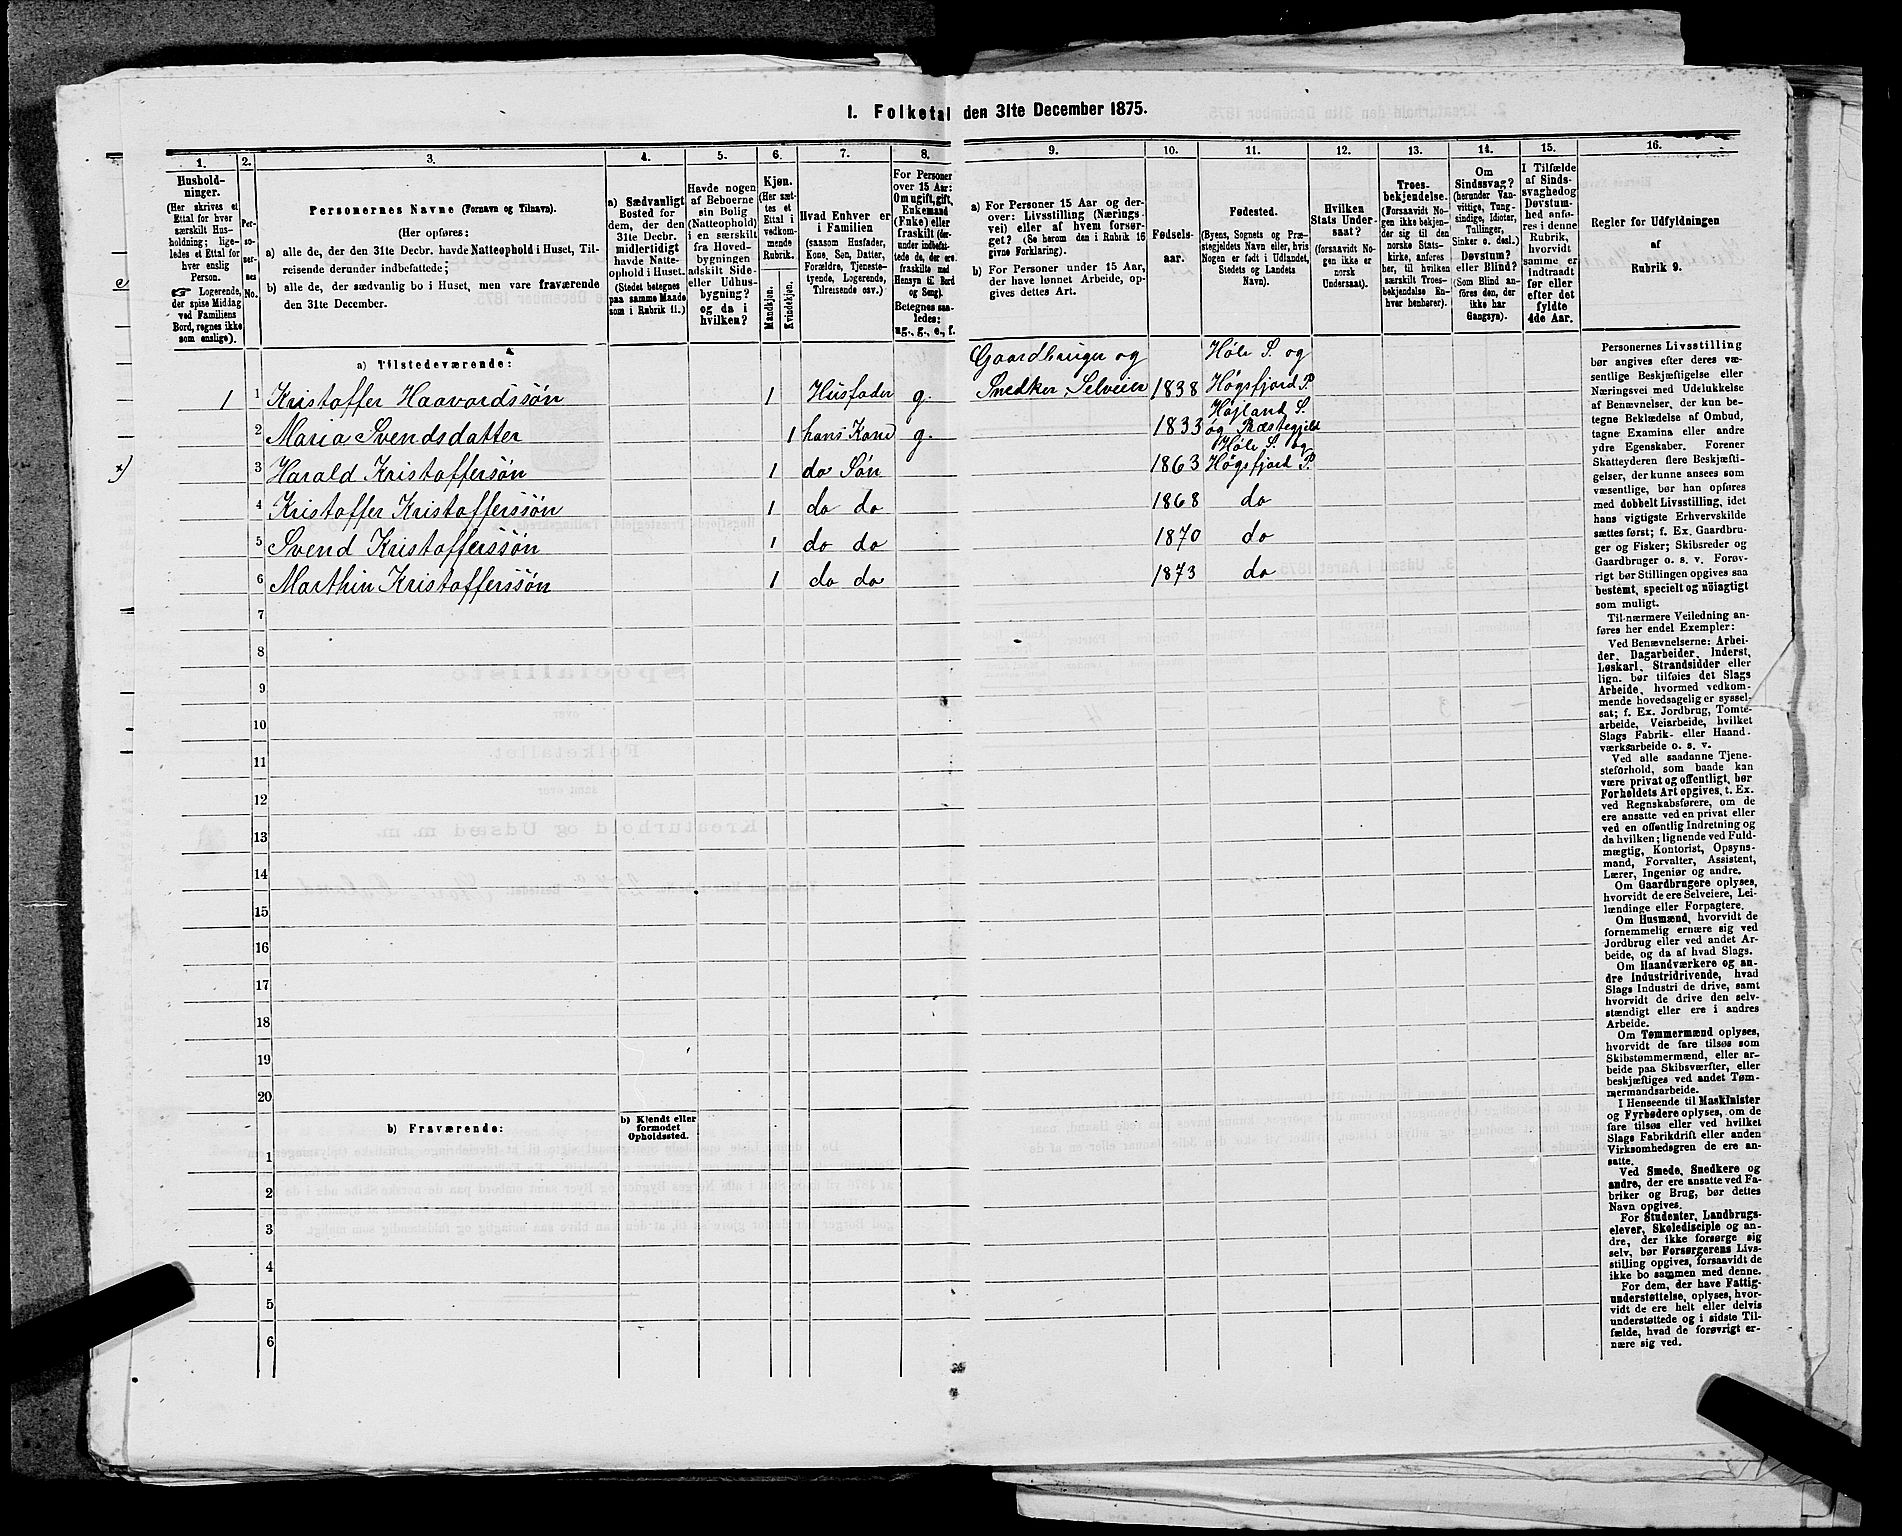 1. Folketal den 31te December 1875.
1.
2.
3.
4.
5.
6.
7.
8.
9.
10.
11.
12.
13.
14.
15.
16.
Hushold-
ninger.
(Her skrives et
Ettal for hver
særskilt Hus-
holdning; lige-
ledes et Ettal for
hver enslig
Person.
☞ Logerende,
der spise Middag
ved Familiens
Bord, regnes ikke
som enslige).
Per-
so-
ner-
nes
No.
Personernes Navne (Fornavn og Tilnavn).
(Her opføres:
a) alle de, der den 31te Decbr. havde Natteophold i Huset, Til-
reisende derunder indbefattede;
b) alle de, der sædvanlig bo i Huset, men vare fraværende
den 31te December.
a) Sædvanligt
Bosted for
dem, der den
31te Decbr.
midlertidigt
havde Natte-
ophold i Huset.
(Stedet betegnes
paa samme Maade
som i Rubrik 11.)
Havde nogen
af Beboerne
sin Bolig
(Natteophold)
i en særskilt
fra Hoved-
bygningen
adskilt Side-
eller Udhus-
bygning?
og da i
hvilken?
Kjøn.
(Her sæt-
tes et
Ettal i
vedkom-
mende
Rubrik.
Mandkjøn.
Kvindekjøn.
Hvad Enhver er
i Familien
(saasom Husfader,
Kone, Søn, Datter,
Forældre, Tjeneste-
tyende, Logerende,
Tilreisende osv.)
For Personer
over 15 Aar:
Om ugift, gift,
Enkemand
(Enke) eller
fraskilt (her-
under indbefat-
tede de, der ere
fraskilte med
Hensyn til Bord
og Seng).
Betegnes saa-
ledes:
ug., g., e., f.
a) For Personer 15 Aar og der-
over: Livsstilling (Nærings-
vei) eller af hvem forsør-
get? (Se herom den i Rubrik 16
givne Forklaring).
b) For Personer under 15 Aar,
der have lønnet Arbeide, op-
gives dettes Art.
Fødsels-
aar.
Fødested.
(Byens, Sognets og Præ-
stegjeldets Navn eller, hvis
Nogen er født i Udlandet,
Stedets og Landets
Navn).
Hvilken
Stats Under-
saat?
(forsaavidt No-
gen ikke er
norsk
Undersaat).
Troes-
bekjendelse.
(Forsaavidt No-
gen ikke bekjen-
der sig til den
norske Stats-
kirke, anføres
her, til hvilken
særskilt Troes-
bekjendelse En-
hver henhører).
Om
Sindssvag?
(herunder Van-
vittige, Tung-
sindige, Idioter,
Tullinger,
Sinker o. desl.)
Døvstum?
eller Blind?
(Som Blind an-
føres den, der
ikke har
Gangsyn).
I Tilfælde
af Sinds-
svaghedog
Døvstum-
hed anfø-
res i denne
Rubrik,
hvorvidt
samme er
indtraadt
før eller
efter det
fyldte
4de Aar.
Regler for Udfyldningen
af
Rubrik 9.
a) Tilstedeværende:
Gaardbruger og Høle S. og
1 1 Kristoffer Haavardssøn 1 Husfader g. Snedker, Selveier 1838 Høgsfjord P.
Højland S.
2 Maria Svendsdatter 1 hans Kone g. 1833 og Præstegjeld
Høle S. og
x) 3 Harald Kristofferssøn 1 do Søn 1863 Høgsfjord P.
4 Kristoffer Kristofferssøn 1 do do 1868 do
5 Svend Kristofferssøn 1 do do 1870 do
6 Marthin Kristofferssøn 1 do do 1873 do
7
8
9
10
11
12
13
14
15
16
17
18
19
20
b) Fraværende:
b) Kjendt eller
formodet
Opholdssted.
1
2
3
4
5
6
Personernes Livsstilling
bør angives efter deres væ-
sentlige Beskjæftigelse eller
Næringsvei med Udelukkelse
af Benævnelser, der kun be-
tegne Beklædelse af Ombud,
tagne Examina eller andre
ydre Egenskaber. Forener
Skatteyderen flere Beskjæfti-
gelser, der kunne ansees som
væsentlige, bør han opføres
med dobbelt Livsstilling, idet
hans vigtigste Erhvervskilde
sættes først; f. Ex. Gaardbru-
ger og Fisker; Skibsreder og
Gaardbruger o. s. v. Forøv-
rigt bør Stillingen opgives saa
bestemt, specielt og nöiagtigt
som muligt.
Til nærmere Veiledning an-
føres her endel Exempler:
Ved Benævnelserne: Arbei-
der, Dagarbeider, Inderst,
Løskarl, Strandsidder eller
lign. bør tilføies det Slags
Arbeide, hvormed vedkom-
mende hovedsagelig er syssel-
sat; f. Ex. Jordbrug, Tomte-
arbeide, Veiarbeide, hvilket
Slags Fabrik- eller Haand-
værksarbeide o. s. v.
Ved alle saadanne Tjene-
steforhold, som baade kan
være privat og offentligt, bør
Forholdets Art opgives, t. Ex.
ved Regnskabsførere, om de
ere ansatte ved en privat eller
ved en offentlig Indretning og
da hvilken; lignende ved Fuld-
mægtig, Kontorist, Opsyns-
mand, Forvalter, Assistent,
Lærer, Ingeniør og andre.
Om Gaardbrugere oplyses,
hvorvidt de ere Selveiere, Lei-
lændinge eller Forpagtere.
Om Husmænd, hvorvidt de
fornemmelig ernære sig ved
Jordbrug eller ved andet Ar-
beide, og da af hvad Slags.
Om Haandværkere og an-
dre Industridrivende, hvad
Slags Industri de drive, samt
hvorvidt de drive den selv-
stændigt eller ere i andres
Arbeide.
Om Tømmermænd oplyses,
hvorvidt de fare tilsøs som
Skibstømmermænd, eller ar-
beide paa Skibsværfter, eller
beskjæftiges ved andet Tøm-
mermandsarbeide.
I Henseende til Maskinister
og Fyrbødere oplyses, om de
fare tilsøs eller ved hvilket
Slags Fabrikdrift eller anden
Virksomhedsgren de ere an-
satte.
Ved Smede, Snedkere og
andre, der ere ansatte ved Fa-
briker og Brug, bør dettes
Navn opgives.
For Studenter, Landbrugs-
elever, Skoledisciple og an-
dre, der ikke forsørge sig
selv, bør Forsørgerens Livs-
stilling opgives, forsaavidt de
ikke bo sammen med denne.
For dem, der have Fattig-
understøttelse, oplyses, hvor-
vidt de ere helt eller delvis
understøttede og i sidste Til-
fælde, hvad de forøvrigt er-
nære sig ved.